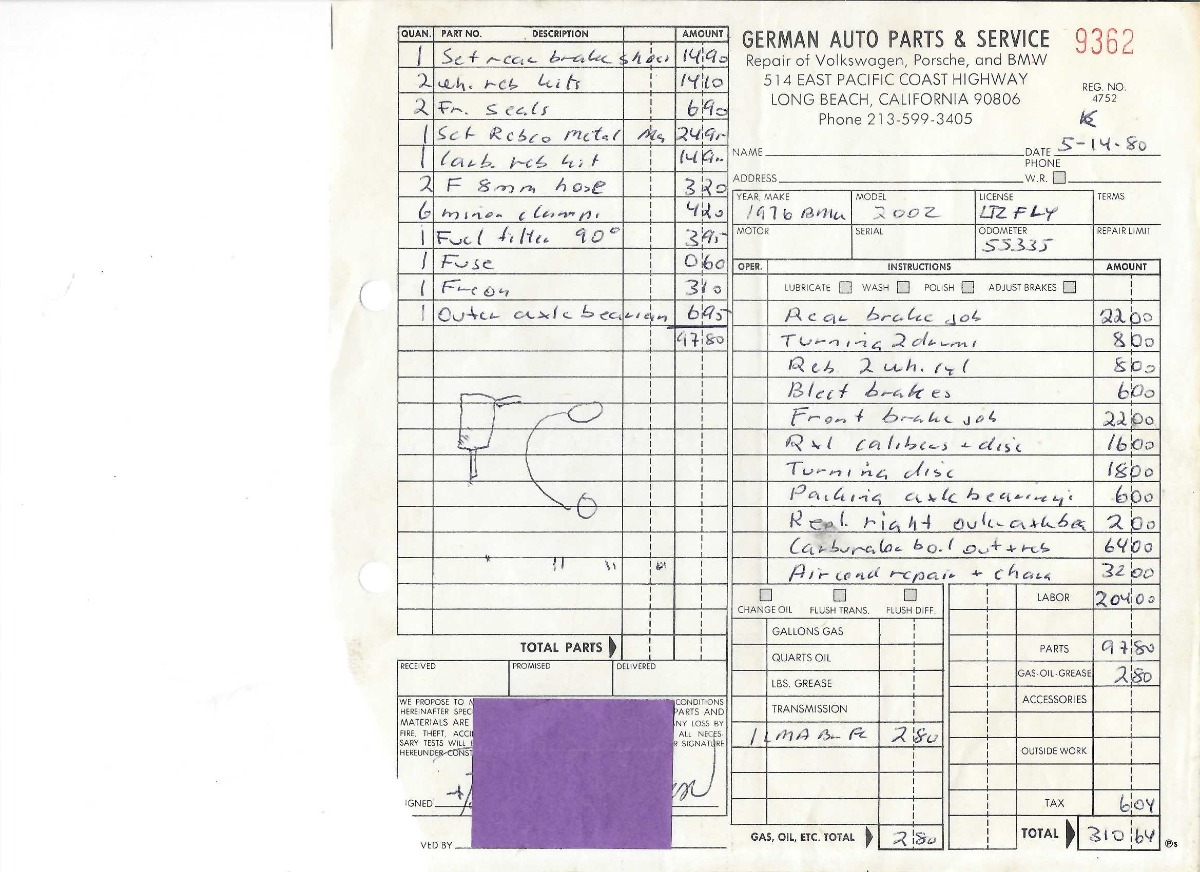 QUAN. PART NO. DESCRIPTION AMOUNT
1 Set rear brake shoes 14 90
2 wh. reb kits 14 10
2 Fr. Seals 6 90
1 Set Repco Metal 24 95
1 Carb. reb kit 14 90
2 F 8mm hose 3 20
6 minor clamps 4 20
1 Fuel filter 90° 3 95
1 Fuse 0 60
1 Freon 3 10
1 Outer axle bearing 6 95
97 80
TOTAL PARTS
RECEIVED PROMISED DELIVERED
WE PROPOSE TO CONDITIONS
HEREINAFTER SPEC PARTS AND
MATERIALS ARE NY LOSS BY
FIRE, THEFT, ACCI ALL NECES-
SARY TESTS WILL R SIGNATURE
HEREUNDER CONST
IGNED
VED BY
GERMAN AUTO PARTS & SERVICE 9362
Repair of Volkswagen, Porsche, and BMW
514 EAST PACIFIC COAST HIGHWAY
LONG BEACH, CALIFORNIA 90806
Phone 213-599-3405
REG. NO.
4752
NAME DATE 5-14-80
PHONE
ADDRESS W.R.
YEAR, MAKE MODEL LICENSE TERMS
1976 BMW 2002 LTZ FLY
MOTOR SERIAL ODOMETER REPAIR LIMIT
55335
OPER. INSTRUCTIONS AMOUNT
LUBRICATE WASH POLISH ADJUST BRAKES
Rear brake job 22 00
Turning 2 drums 8 00
Reb 2 wh. cyl 8 00
Bleet brakes 6 00
Front brake job 22 00
R+I calibers + disc 16 00
Turning disc 18 00
Packing axle bearings 6 00
Repl. right 2 00
Carburator boil out + reb 64 00
Air cond repair + charg 32 00
CHANGE OIL FLUSH TRANS. FLUSH DIFF.
GALLONS GAS
QUARTS OIL
LBS. GREASE
TRANSMISSION
1 LMA Br. Fl 2 80
GAS, OIL, ETC. TOTAL 2 80
LABOR 204 00
PARTS 97 80
GAS-OIL-GREASE 2 80
ACCESSORIES
OUTSIDE WORK
TAX 6 04
TOTAL 310 64